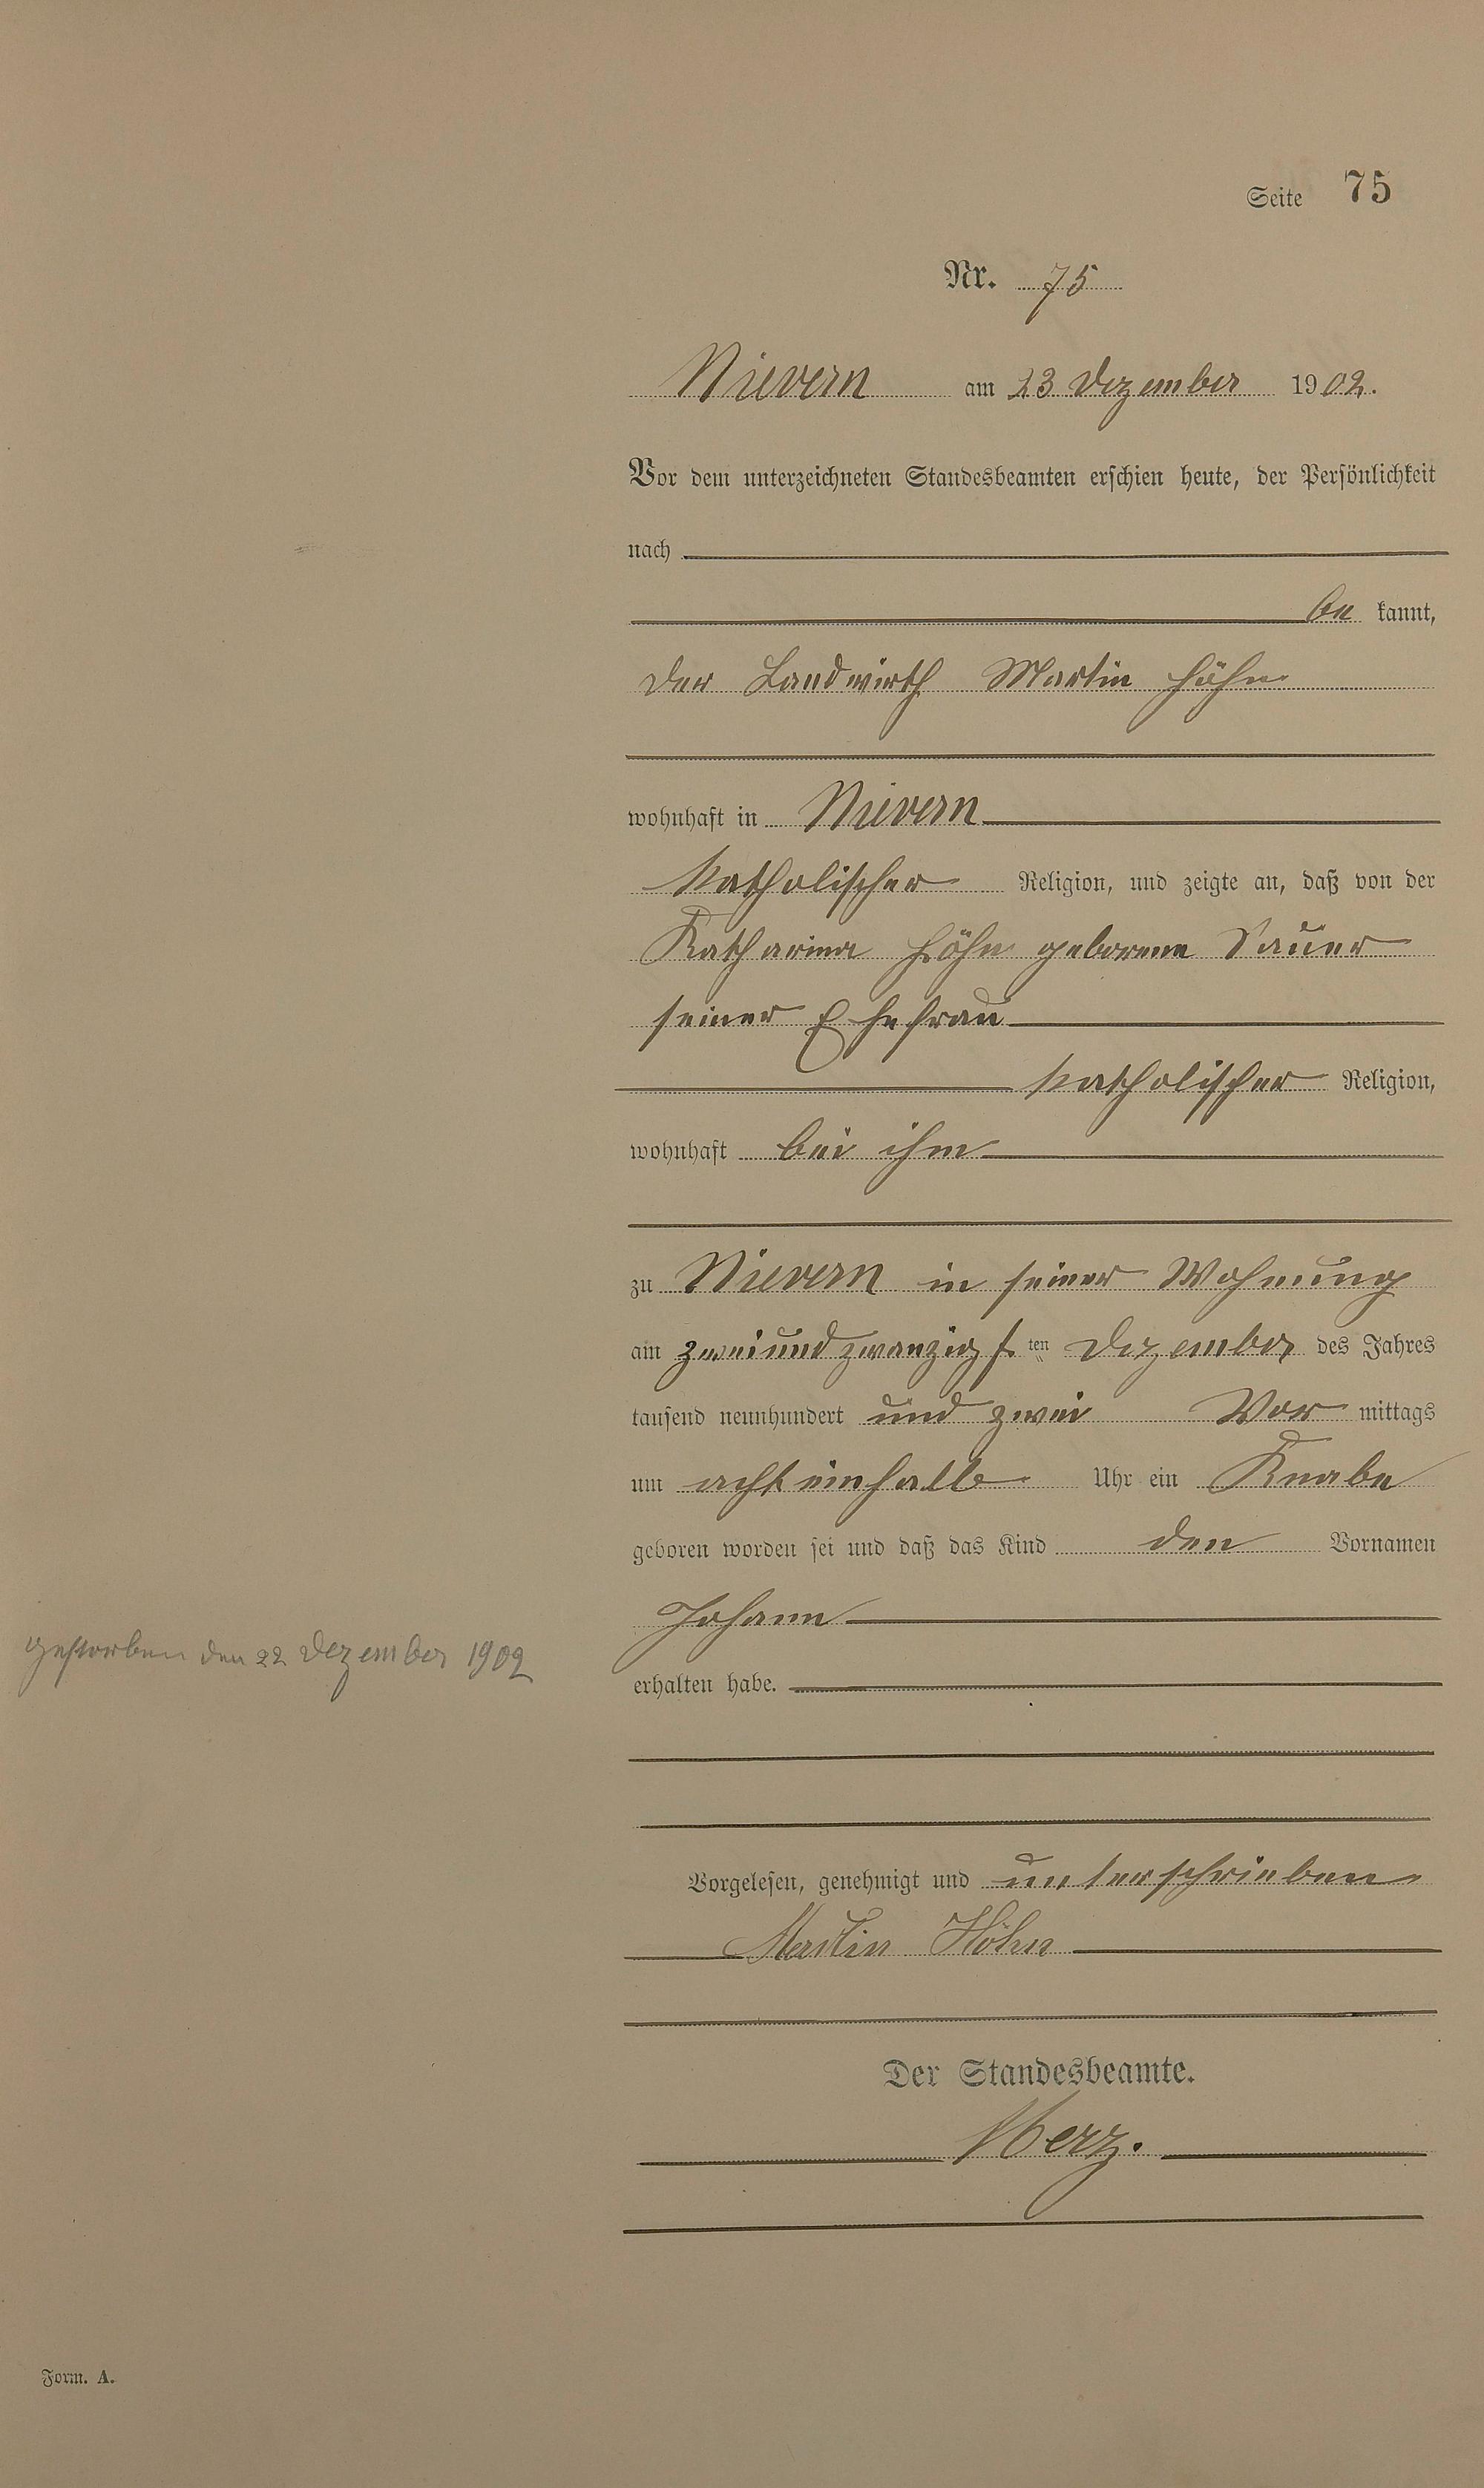 Seite 75
Nr. 75
Nievern am 23 Dezember 1902.
Vor dem unterzeichneten Standesbeamten erschien heute, der Persönlichkeit
nach
be kannt,
der Landwirth Martin Höhn
wohnhaft in Nievern
katholischer Religion, und zeigte an, daß von der
Katharina Höhn geborene Sauer
seiner Ehefrau
katholischer Religion,
wohnhaft bei ihm
zu Nievern in seiner Wohnung
am zweiundzwanzigsten Dezember des Jahres
tausend neunhundert und zwei Vor mittags
um acht einhalb Uhr ein Knabe
geboren worden sei und daß das Kind den Vornamen
Johann
gestorben den 22 Dezember 1902
erhalten habe.
Vorgelesen, genehmigt und unterschrieben
Martin Höhn
Der Standesbeamte.
Merz.
Form. A.